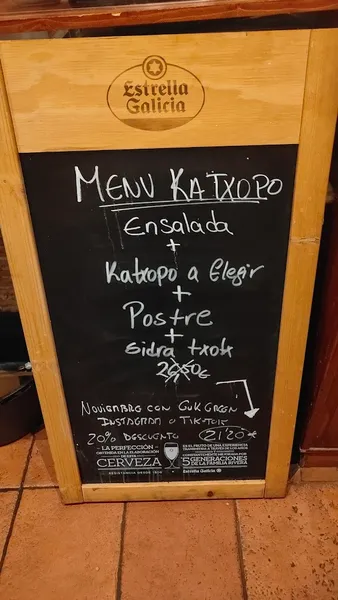 Estrella
Galicia
MENU KATXOPO
Ensalada
+
Katxopo a Elegir
+
Postre
+
Sidra txotx
26,50€
NOVIEMBRE CON GUKGREEN
INSTAGRAM O TIKTOK
20% DESCUENTO 21'20*
LA PERFECCIÓN
OBTENIDA EN LA ELABORACIÓN
DE ESTA
CERVEZA
ES EL FRUTO DE UNA EXPERIENCIA
5 GENERACIONES
DE LA FAMILIA RIVERA
Estrella Galicia